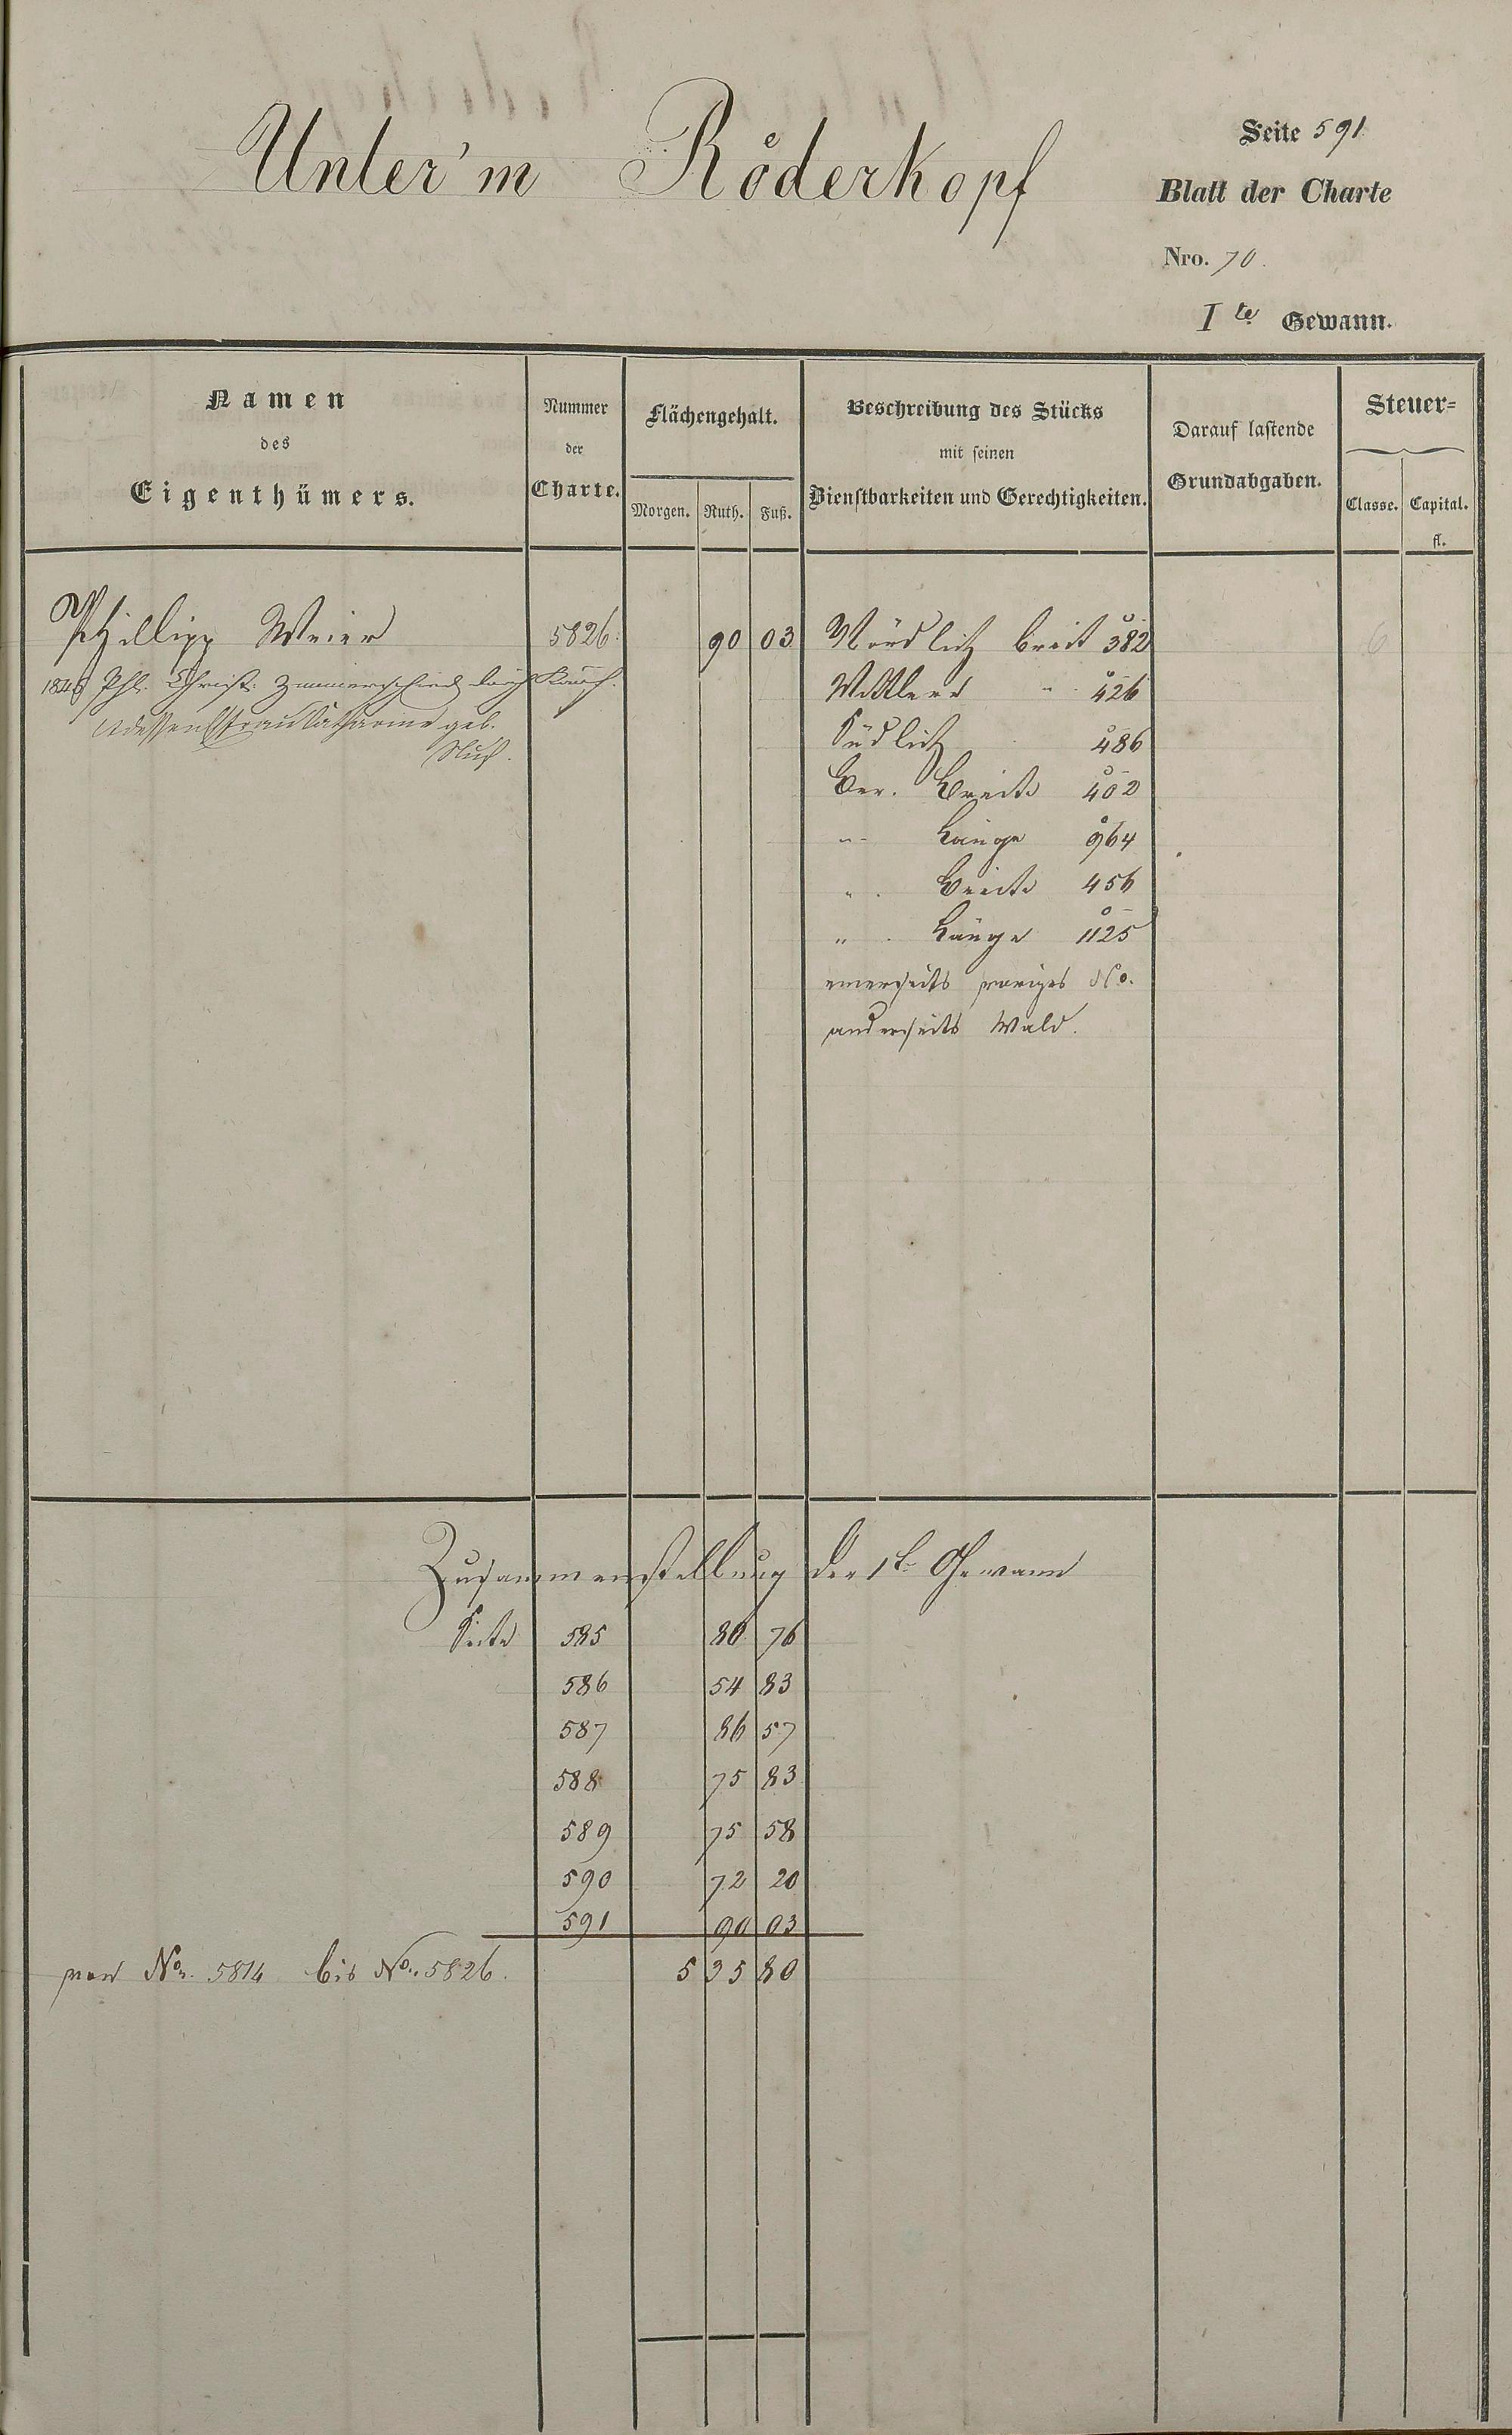 Unter'm Röderkopf
Seite 591
Blatt der Charte
Nro. 70.
Ite Gewann.
Namen
des
Eigenthümers.
Nummer
der
Charte.
Flächengehalt.
Morgen. Ruth. Fuß.
Beschreibung des Stücks
mit seinen
Dienstbarkeiten und Gerechtigkeiten.
Darauf lastende
Grundabgaben.
Steuer-
Classe. Capital.
fl.
Philipp Meier 5826. 90 03 Nördlich breit 382 6
1846 Phl. Christ. Zimmerschied durch Kauf. Mittlere " 426
u dessen Efrau Catharine geb. Südlich 486
Ber. Breite 402
" Länge 964
" Breite 456
" Länge 1125
einerseits voriges No.
anderseits Wald.
Zusammenstellung der 1t. Gewann
Seite 585 80 76
586 54 83
587 86 57
588 75 83
589 75 58
590 72 20
591 90 03
von No. 5814 bis No. 5826. 5 35 80